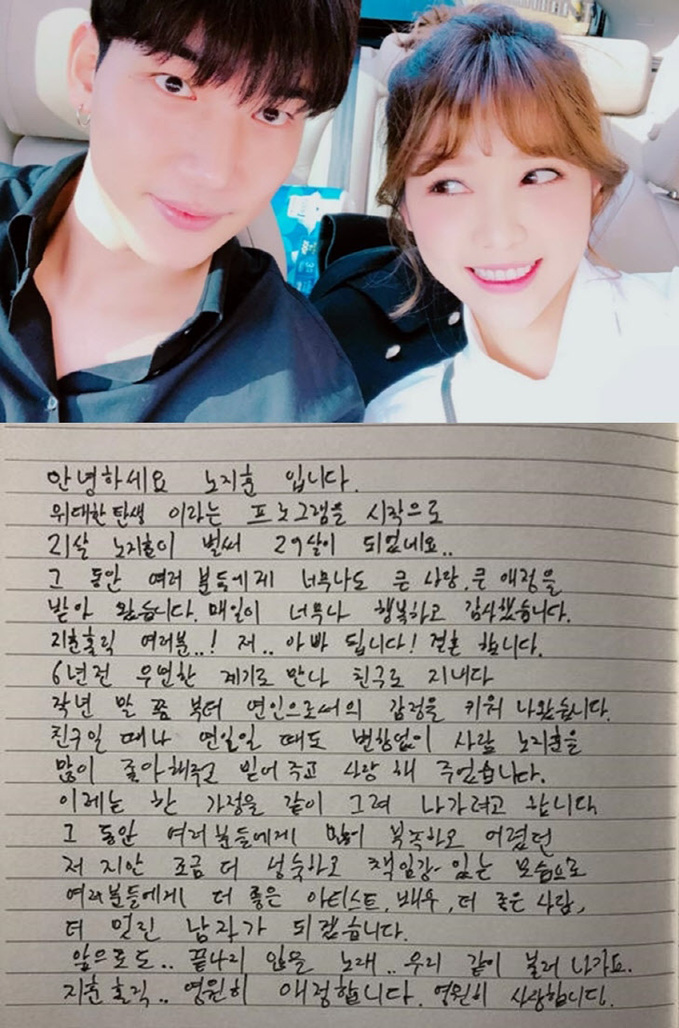 안녕하세요 노지훈 입니다.
위대한탄생 이라는 프로그램을 시작으로
21살 노지훈이 벌써 29살이 되었네요..
그 동안 여러분들에게 너무나도 큰 사랑, 큰 애정을
받아 왔습니다. 매일이 너무나 행복하고 감사했습니다.
지훈홀릭 여러분..! 저.. 아빠 됩니다! 결혼 합니다.
6년전 우연한 계기로 만나 친구로 지내다
작년 말 쯤 부터 연인으로써의 감정을 키워 나왔습니다.
친구일 때나 연일일 때도 변함없이 사람 노지훈을
많이 좋아해주고 믿어주고 사랑 해 주었습니다.
이제는 한 가정을 같이 그려 나가려고 합니다
그 동안 여러분들에게 많이 부족하고 어렸던
저 지만 조금 더 성숙하고 책임감 있는 모습으로
여러분들에게 더 좋은 아티스트, 배우, 더 좋은 사람,
더 멋진 남자가 되겠습니다.
앞으로도.. 끝나지 않을 노래.. 우리 같이 불러 나가요.
지훈홀릭.. 영원히 애정합니다. 영원히 사랑합니다.